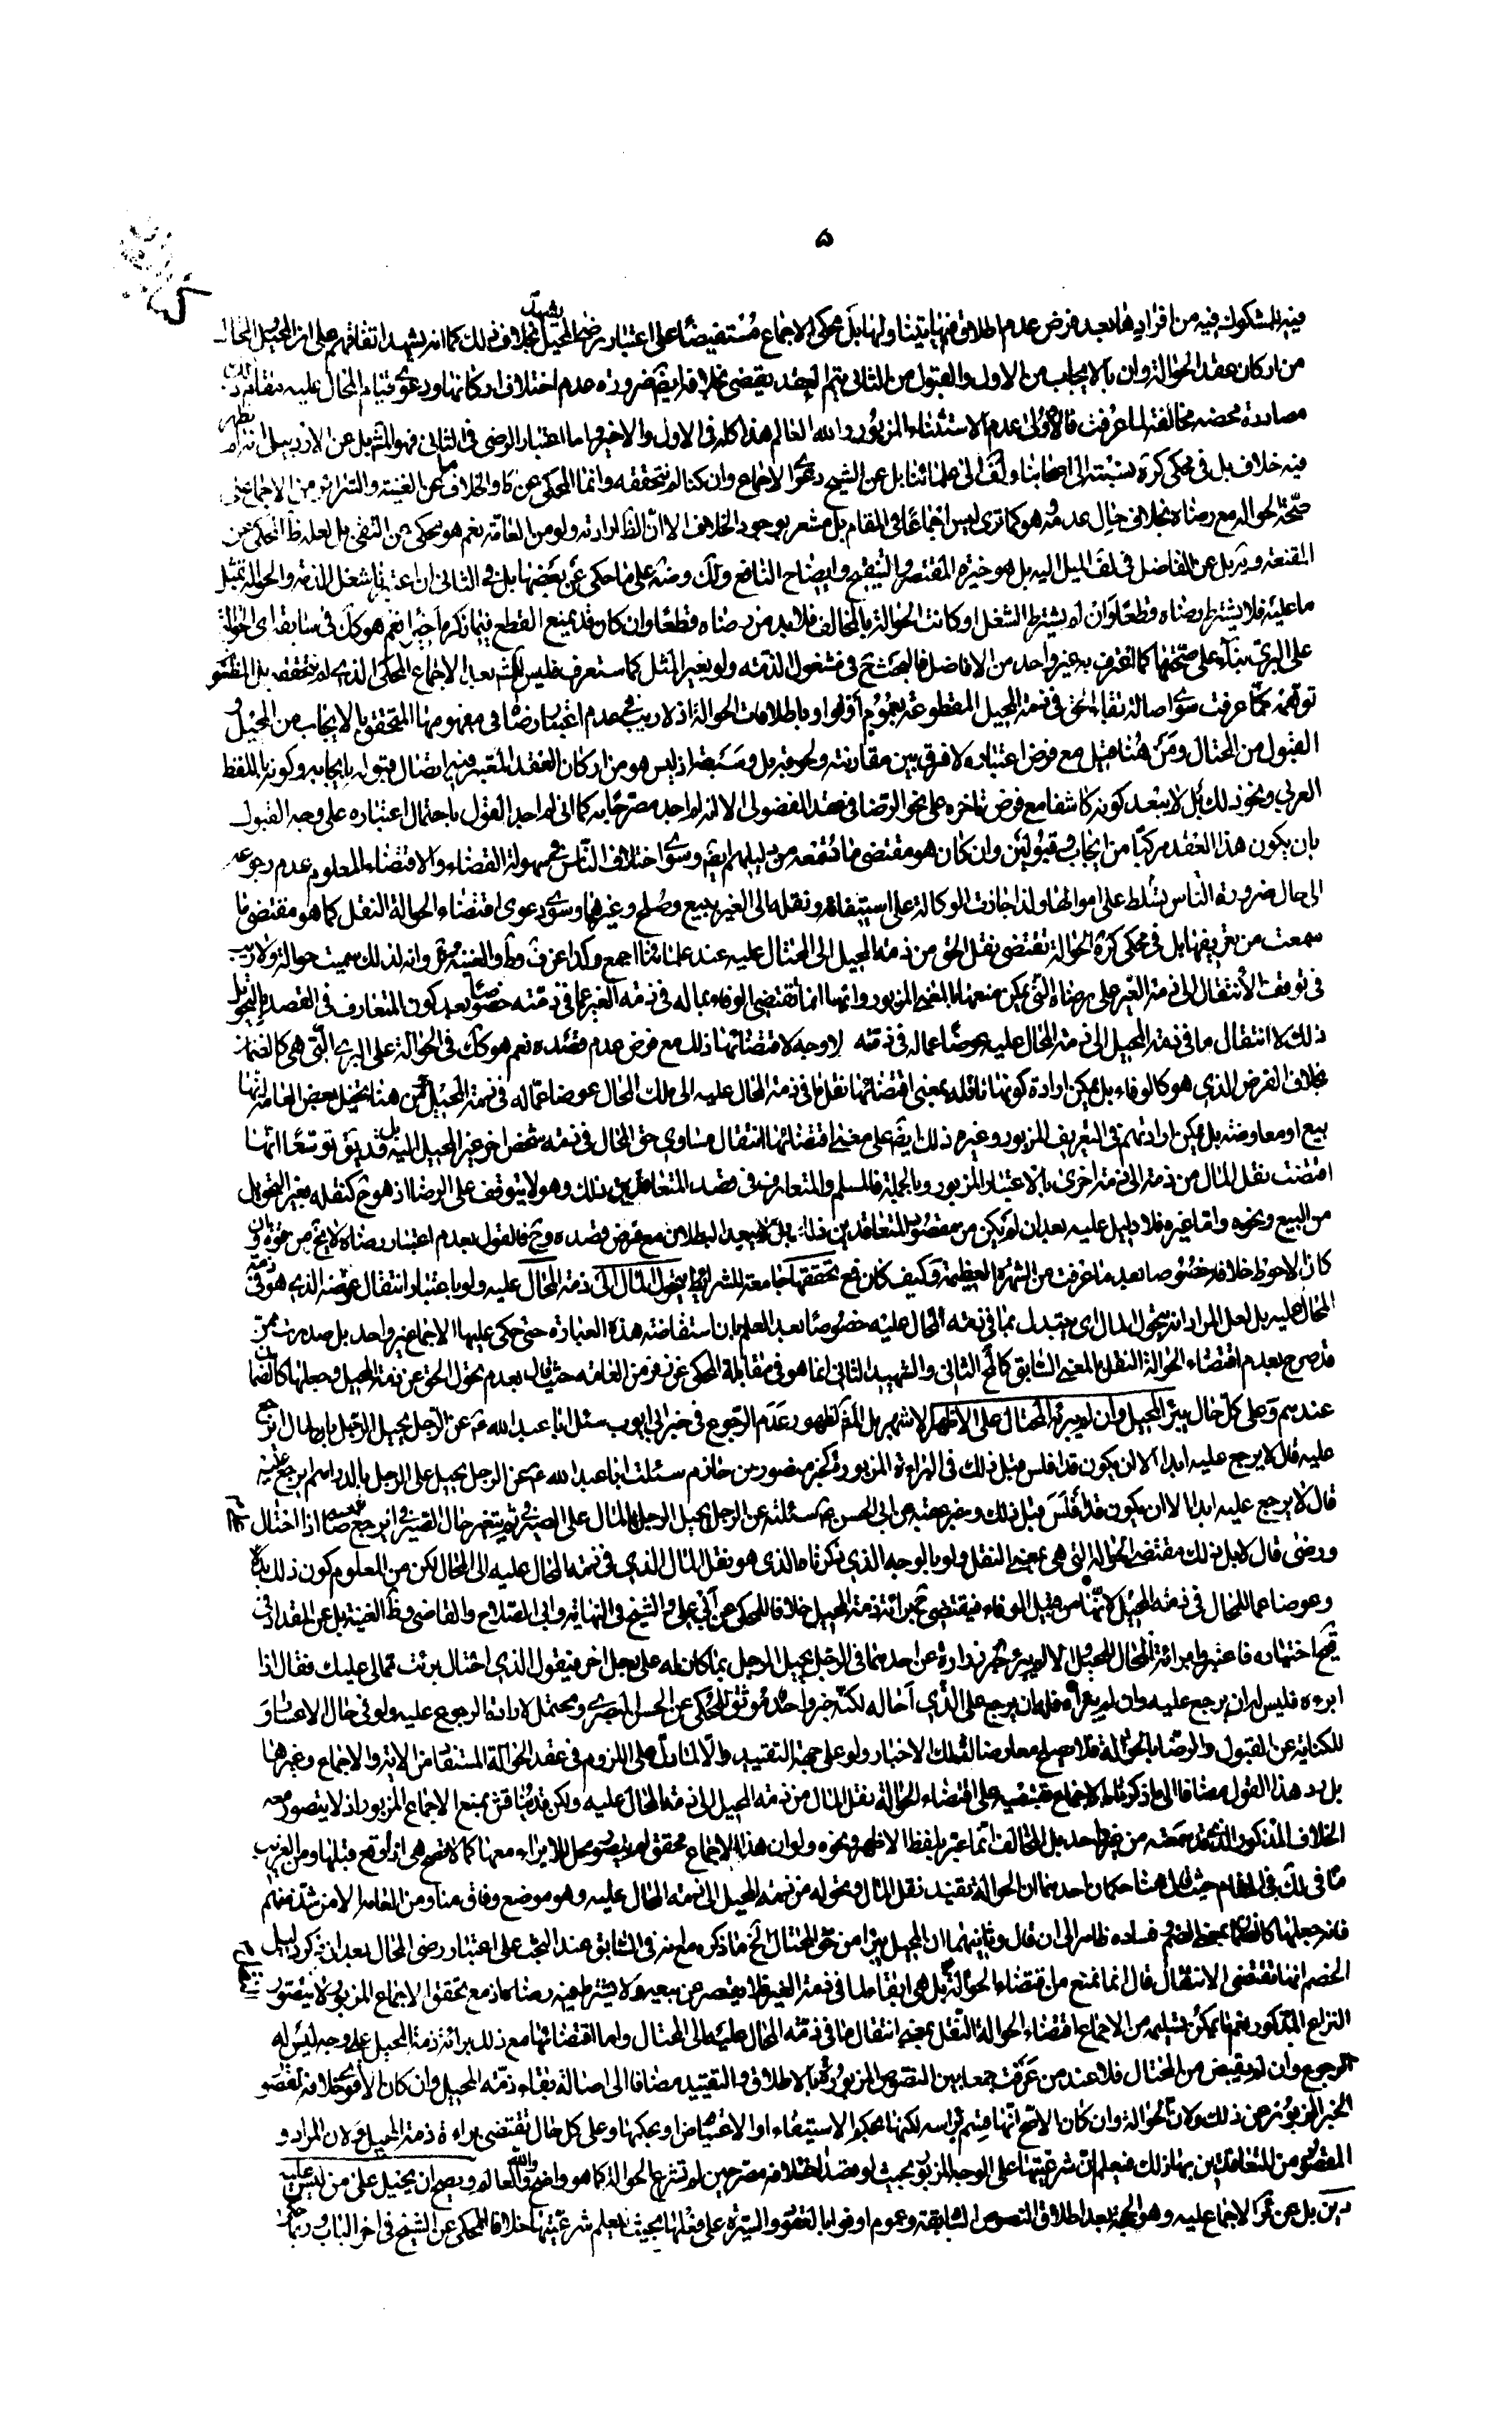 ۵
فيه المشكوك فيه من افرادها بعد فرض عدم اطلاق فيها يتناولها بل محكي الاجماع مستفيضا على اعتبار رضى المحيل بخلاف ذلك كما انه يشهد اتفاقهم على ان المحيل المحال
من اركان عقد الحوالة وان بالايجاب من الاول والقبول من الثاني يتم العقد يقضى بخلافه ايضا ضرورة عدم اختلاف اركانها ودعوى قيام المحال عليه مقام
مصادرة محضة مخالفة لما عرفت فالاولى عدم الاستثناء المزبور والله العالم هذا كله في الاول والاخير واما اعتبار الرضى في الثاني فهو المشهور بل عن الاردبيلي
فيه خلاف بل في محكي كرة نسبته الى اصحابنا ولف الى علمائنا بل عن الشيخ دعوى الاجماع وان كنا لم نتحققه وانما المحكي عن والخلاف عن الغنية والسرائر من الاجماع على
صحة الحوالة مع رضاه بخلاف حال عدمه وهو كما ترى ليس اجماعا في المقام بل مشعر بوجود الخلاف الا ان الظ ارادته ولو من العامة نعم هو محكي عن التقى بل لعله ظ المحكي عن
المقنعة وية بل عن الفاضل في لف الميل اليه بل هو خيرة المقتصر والتنقيح وايضاح النافع ولك وضة على ما حكى عن بعضها بل في الثاني ان اعتبرنا شغل الذمة والحوالة بمثل
ما عليه فلا يشترط رضاه قطعا وان لم يشترط الشغل او كانت الحوالة بالمخالف فلا بد من رضاه قطعا وان كان قد يمنع القطع فيما ذكر اخيرا نعم هو كك في سابقه اي الحوالة
على البرئ بناء على صحتها كما اعترف به غير واحد من الافاضل فالبحث ح في مشغول الذمة ولو بغير المثل كما ستعرف فليس للمشهور بعد الاجماع المحكي الذي لم نتحققه بل المظنون
توهمه مما عرفت سوى اصالة بقاء الحق في ذمة المحيل المقطوعة بعموم اوفوا وباطلاقات الحوالة اذ لا ريب في عدم اعتبار رضا في مفهومها المتحقق بالايجاب من المحيل و
القبول من المحتال ومن هنا قيل مع فرض اعتباره لا فرق بين مقارنته ولحوقه بل وسبقه اذ ليس هو من اركان العقد المعتبر فيه اتصال قبوله بايجابه وكونه باللفظ
العربي ونحو ذلك بل لا يبعد كونه كاشفا مع فرض تاخره على نحو الرضا في عقد الفضولي الا انه لم اجد مصرحا به كما اني لم اجد القول باحتمال اعتباره على وجه القبول
بان يكون هذا العقد مركبا من ايجاب وقبولين وان كان هو مقتضى ما تسمعه من دليلهم ايضا وسوى اختلاف الناس في سهولة القضاء والاقتضاء المعلوم عدم رجوعه
الى حال ضرورة الناس تسلط على اموالها ولذا جازت الوكالة على استيفائه ونقله الى الغير ببيع وصلح وغيرهما وسوى دعوى اقتضاء الحوالة النقل كما هو مقتضى ما
سمعت من تعريفها بل في محكي كرة الحوالة تقتضى نقل الحق من ذمة المحيل الى المحتال عليه عند علمائنا اجمع وكذا عن ف وط والغنية وئر وانه لذلك سميت حوالة ولا ريب
في توقف الانتقال الى ذمة الغير على رضاه التي يمكن منعها بالمعنى المزبور وانها انما تقتضى الوفاء بماله في ذمة الغير عما في ذمته خصوصا بعد كون المتعارف في القصد بالتحويل
ذلك لا انتقال ما في ذمة المحيل الى ذمة المحال عليه عوضا عما له في ذمته لا وجه لاقتضائها ذلك مع فرض عدم قصده نعم هو كك في الحوالة على البرى التي هي كالضمان
بخلاف الفرض الذي هو كالوفاء بل يمكن ارادة كونها ناقلة بمعنى اقتضائها نقل ما في ذمة المحال عليه الى ملك المحال عوضا عما له في ذمة المحيل ومن هنا تخيل بعض العامة انها
بيع او معاوضة بل يمكن ارادتهم في التعريف المزبور وغيره ذلك ايضا على معنى اقتضائها انتقال مساوي حق المحال في ذمة شخص اخر غير المحيل اليه بل قد يق توسعا انها
اقتضت نقل المال من ذمة الى ذمة اخرى بالاعتبار المزبور وبالجملة فالمسلم والمتعارف في قصد المتعاقدين ذلك وهو لا يتوقف على الرضا اذ هو ح كنقله بغير التحويل
من البيع ونحوه واما غيره فلا دليل عليه بعد ان لم يكن من مقصود المتعاقدين ذلك بل لا يبعد البطلان مع فرض قصده وح فالقول بعدم اعتبار رضاه لا يخ من قوة وان
كان الاحوط خلافه خصوصا بعد ما عرفت من الشهرة العظيمة وكيف كان فمع تحققها جامعة للشرائط يتحول المال الى ذمة المحال عليه ولو باعتبار انتقال عوضه الذي هو في ذمة
المحال عليه بل لعل المراد انه يتحول المال اي يتبدل بما في ذمة المحال عليه خصوصا بعد العلم بان استفاضة هذه العبارة حتى حكى عليها الاجماع غير واحد بل صدرت ممن
قد صرح بعدم اقتضاء الحوالة النقل بالمعنى السابق كالمحقق الثاني والشهيد الثاني انما هو في مقابلة المحكي عن زفر من العامة حيث قال بعدم تحول الحق عن ذمة المحيل وجعلها كالضمان
عندهم وعلى كل حال يبرئ المحيل وان لم يبرئه المحتال على الاظهر الاشهر بل المشهور لظهور عدم الرجوع في خبر ابي ايوب سئل ابا عبد الله ع عن الرجل يحيل الرجل بالمال ايرجع
عليه قال لا يرجع عليه ابدا الا ان يكون قد افلس قبل ذلك في البراءة المزبورة كخبر منصور بن حازم سئلت ابا عبد الله ع عن الرجل يحيل على الرجل بالدراهم ايرجع عليه
قال لا يرجع عليه ابدا الا ان يكون قد افلس قبل ذلك وخبر عقبة عن ابي الحسن ع سئلته عن الرجل يحيل الرجل بالمال على الصيرفي ثم يتغير حال الصيرفي ايرجع على صاحبه اذا احتال
ورضى قال لا بل ذلك مقتضى الحوالة التي هي بمعنى النقل ولو بالوجه الذي ذكرناه الذي هو نقل المال الذي في ذمة المحال عليه الى المحال لكن من المعلوم كون ذلك
وعوضا عما للمحال في ذمة المحيل لانها من قبيل الوفاء فيقتضى ح برائة ذمة المحيل خلافا للمحكي عن ابي علي والشيخ في النهاية وابي الصلاح والقاضي وظ الغنية بل عن المقداد في
كنز اختياره فاعتبروا برائة المحال للمحيل لا لم يبرئ لخبر زرارة عن احدهما في الرجل يحيل الرجل بما كان له على رجل اخر فيقول الذي احتال برئت مما لي عليك فقال اذا
ابرءه فليس له ان يرجع عليه وان لم يبرئه فله ان يرجع على الذي احاله لكنه خبر واحد موثق للمحكي عن الحسن البصري ومحتمل لارادة الرجوع عليه ولو في حال الاعسار و
للكناية عن القبول والرضا بالحوالة فلا يصلح معارضا لتلك الاخبار ولو على جهة التقييد ولا لما دل على اللزوم في عقد الحوالة المستفاد من الاية والاجماع وغيرهما
بل يرد هذا القول مضافا الى ما ذكرناه الاجماع على اقتضاء الحوالة نقل المال من ذمة المحيل الى ذمة المحال عليه ولكن قد يناقش بمنع الاجماع المزبور اذ لا يتصور معه
الخلاف المذكور الذي سمعته من غير واحد بل المخالف انما عبر بلفظ الاظهر ونحوه ولو ان هذا الاجماع محقق لم يتصور محل للابراء معها كما لا تصح هي اذا وقع قبلها ومن الغريب
ما في لك في المقام حيث قال هنا حكمان احدهما ان الحوالة تفيد نقل المال وتحوله من ذمة المحيل الى ذمة المحال عليه وهو موضع وفاق منا ومن العامة الا من شذ منهم
فانه جعلها كالضمان بمعنى الضم وفساده ظاهر الى ان قال وثانيهما ان المحيل يبرا من حق المحتال الخ ما ذكره مع انه في السابق عند البحث على اعتبار رضى المحال بعد ان ذكر دليل
الخصم انها تقتضى الانتقال قال انما نمنع من اقتضاء الحوالة بل هي ايفاء لما في ذمة الغير فلا يقصر عن بيعه ولا يشترط فيه رضاه اذ مع تحقق الاجماع المزبور لا يتصور
النزاع المذكور نعم ما يمكن تسليمه من الاجماع اقتضاء الحوالة النقل بمعنى انتقال ما في ذمة المحال عليه الى المحتال واما اقتضائها مع ذلك برائة ذمة المحيل على وجه ليس له
الرجوع وان لم يقبض من المحتال فلا عند من عرفت جمعا بين النصوص المزبورة بالاطلاق والتقييد مضافا الى اصالة بقاء ذمة المحيل وان كان الاقوى خلافه لقصور
الخبر المزبور عن ذلك ولان الحوالة وان كان الاصح انها قسم براسه لكنها بحكم الاستيفاء او الاعتياض او بحكمها وعلى كل حال تقتضى براءة ذمة المحيل ولان المراد و
المقصود من المتعاقدين بها ذلك فيعلم ان شرعيتها على الوجه المزبور بحيث لو قصد اختلافه مصرحين لم تشرع الحوالة كما هو واضح والله العالم ويصح ان يحيل على من ليس عليه
دين بل عن ئر الاجماع عليه وهو الحجة بعد اطلاق النصوص السابقة وعموم اوفوا بالعقود والسيرة على فعلها بحيث يعلم شرعيتها خلافا للمحكي عن الشيخ في اخر الباب وربما